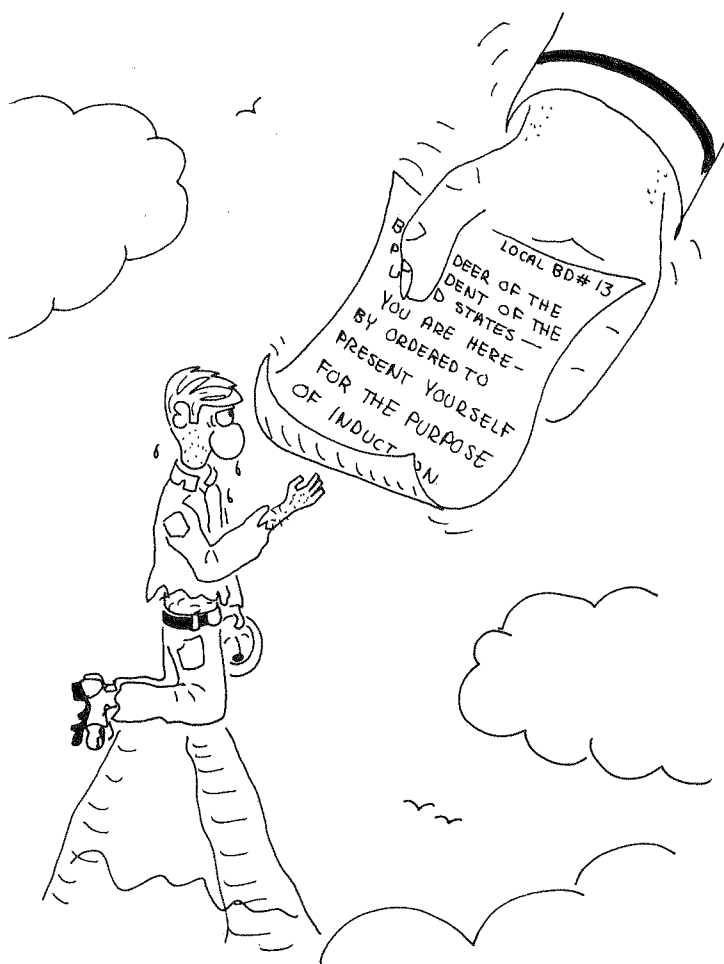 LOCAL BD# 13
B DEER OF THE
P DENT OF THE
U D STATES —
YOU ARE HERE-
BY ORDERED TO
PRESENT YOURSELF
FOR THE PURPOSE
OF INDUCT ON